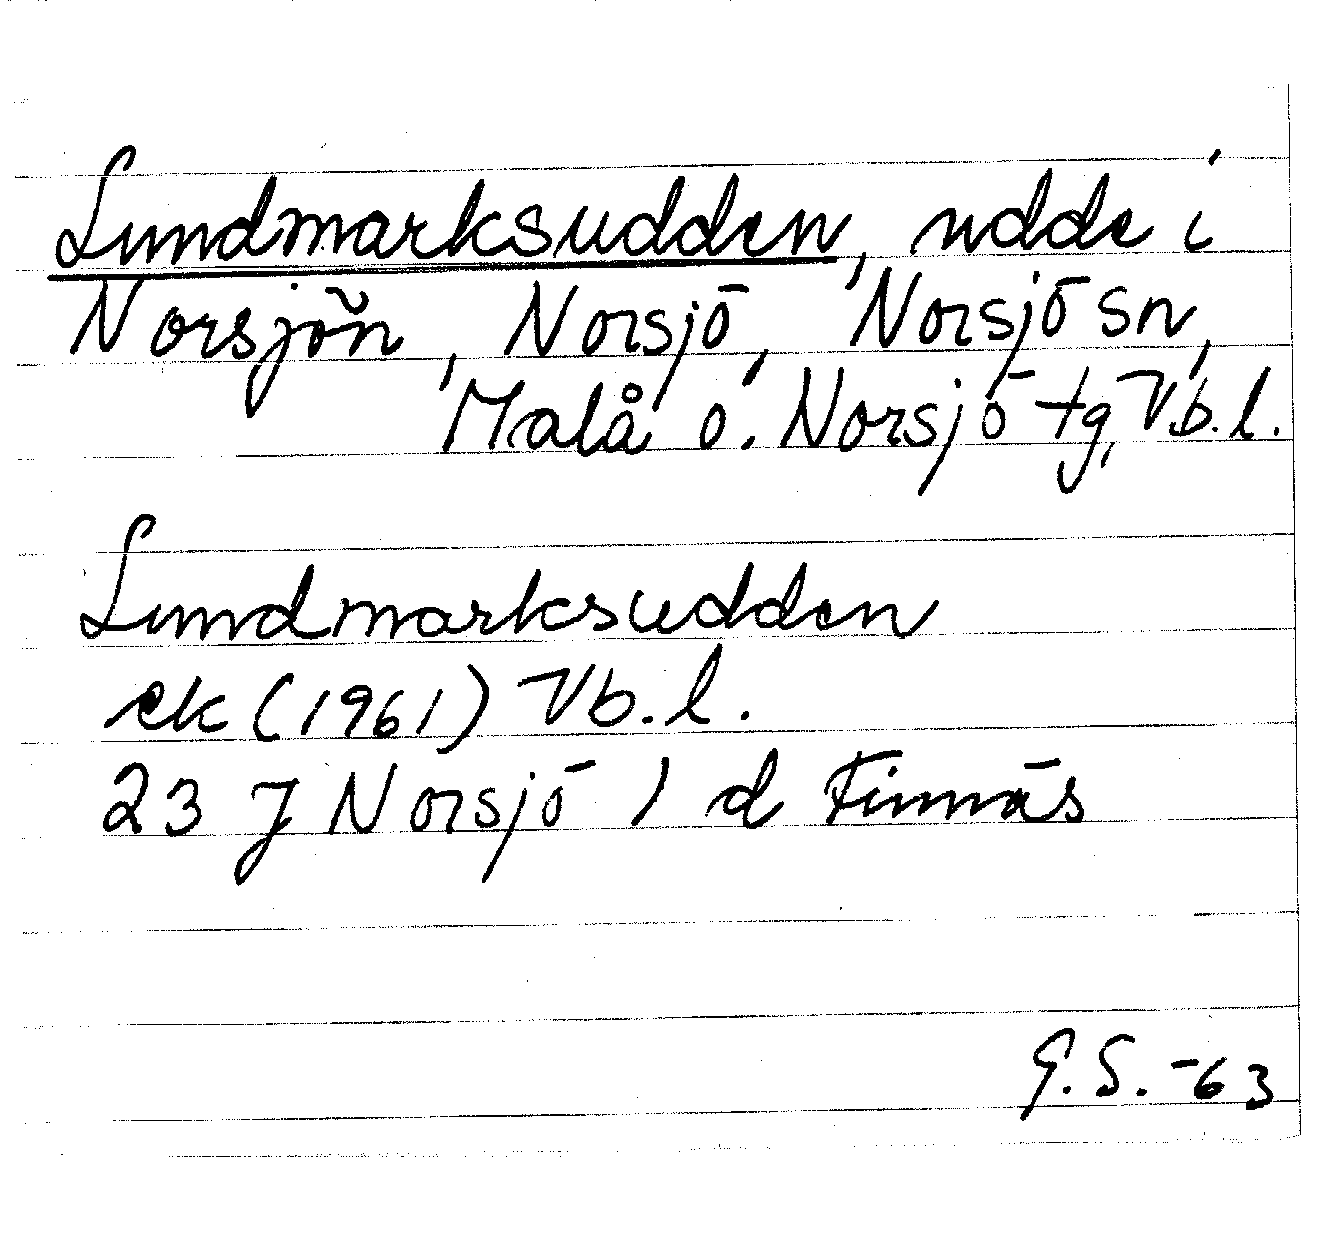 Lundmarksudden, udde i
Norsjön, Norsjö, Norsjö sn,
Malå o. Norsjö tg, Vb.l.
Lundmarksudden
ek (1961) Vb.l.
23 J Norsjö 1 d Finnäs
G.S.-63